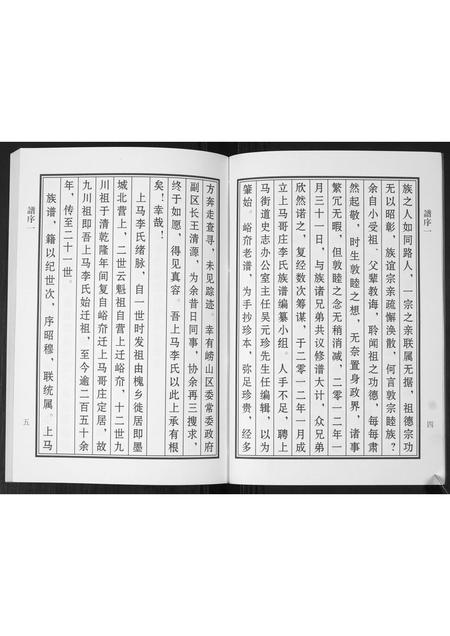 譜序一
四
族之人如同路人，一宗之亲联属无据，祖德宗功
无以昭彰，族谊宗亲疏懈涣散，何言敦宗睦族？
余自小受祖、父辈教诲，聆闻祖之功德，每每肃
然起敬，时生敦睦之想，无奈置身政界，诸事
繁冗无暇，但敦睦之念无稍消减，二零一二年一
月三十一日，与族谱兄弟共议修谱大计，众兄弟
欣然诺之，复经数次筹谋，于二零一二年一月成
立上马哥庄李氏族谱编纂小组。人手不足，聘上
马街道史志办公室主任吴元珍先生任编辑，以为
肇始。峪夼老谱，为手抄珍本，弥足珍贵，经多
方奔走查寻，未见踪迹。幸有崂山区委常委政府
副区长王清源，为余昔日同事，协余再三搜求，
终于如愿，得见真容。吾上马李氏以此上承有根
矣！幸哉！
上马李氏绪脉，自一世时发祖由槐乡徙居即墨
城北营上，二世云魁祖自营上迁峪夼，十二世九
川祖于清乾隆年间复自峪夼迁上马哥庄定居，故
九川祖即吾上马李氏始迁祖，至今逾二百五十余
年，传至二十一世。
族谱，籍以纪世次，序昭穆，联统属。上马
譜序一
五